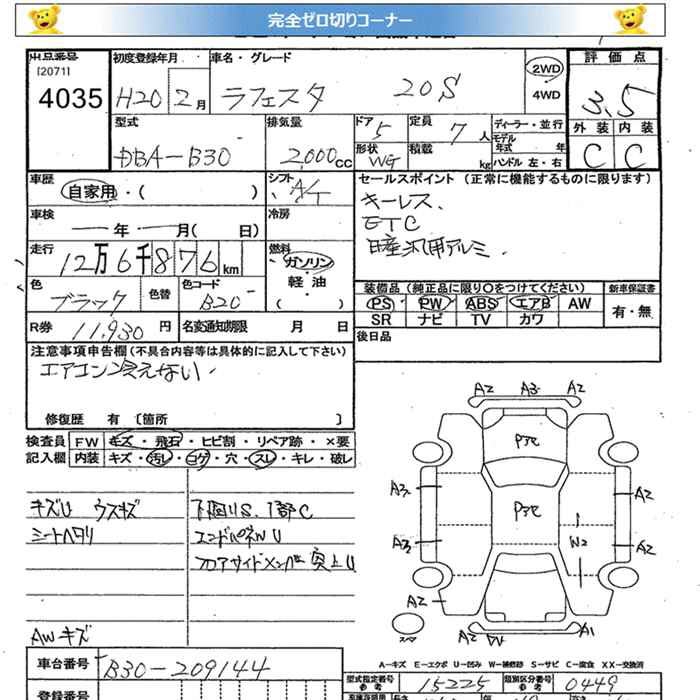 完全ゼロ切りコーナー
出品番号 初度登録年月 車名・グレード 評価点
[2071]
4035 H20 2月 ラフェスタ 20S 2WD 4WD 3.5
外装 内装
C C
型式 排気量 ドア 定員 ディーラー・並行
DBA-B30 2,000cc 5 7人 モデル年式 年
形状 積載 ハンドル 左・右
WG kg
車歴 シフト セールスポイント (正常に機能するものに限ります)
自家用・( ) AT キーレス、
車検 冷房 ETC
年 月( 日) 日産汎用アルミ、
走行 燃料
12万6千876km ガソリン・軽油・( )
色 色替 色コード 装備品 (純正品に限り○をつけてください) 新車保証書
ブラック B20 PS PW ABS エアB AW 有・無
SR ナビ TV カワ
R券 11,930円 名変通知期限 月 日 後日品
注意事項申告欄 (不具合内容等は具体的に記入して下さい)
エアコン冷えない.
修復歴 有 [箇所 ]
検査員 FW キズ・飛石・ヒビ割・リペア跡・×要
記入欄 内装 キズ・汚れ・コゲ・穴・スレ・キレ・破レ
キズU ウスキズ 下回りS、1部C
シートヘタリ エンドパネU
フロアサイドメンバー突上U
AWキズ
A2 A3 A2
Pアセ
Pアセ
A3 A2
A3 W2 A2
A2 A2
スペア A2 A1
A-キズ E-エクボ U-凹み W-補修跡 S-サビ C-腐食 XX-交換済
車台番号 B30-209144
型式指定番号 参考 15225 類別区分番号 参考 0449
登録番号